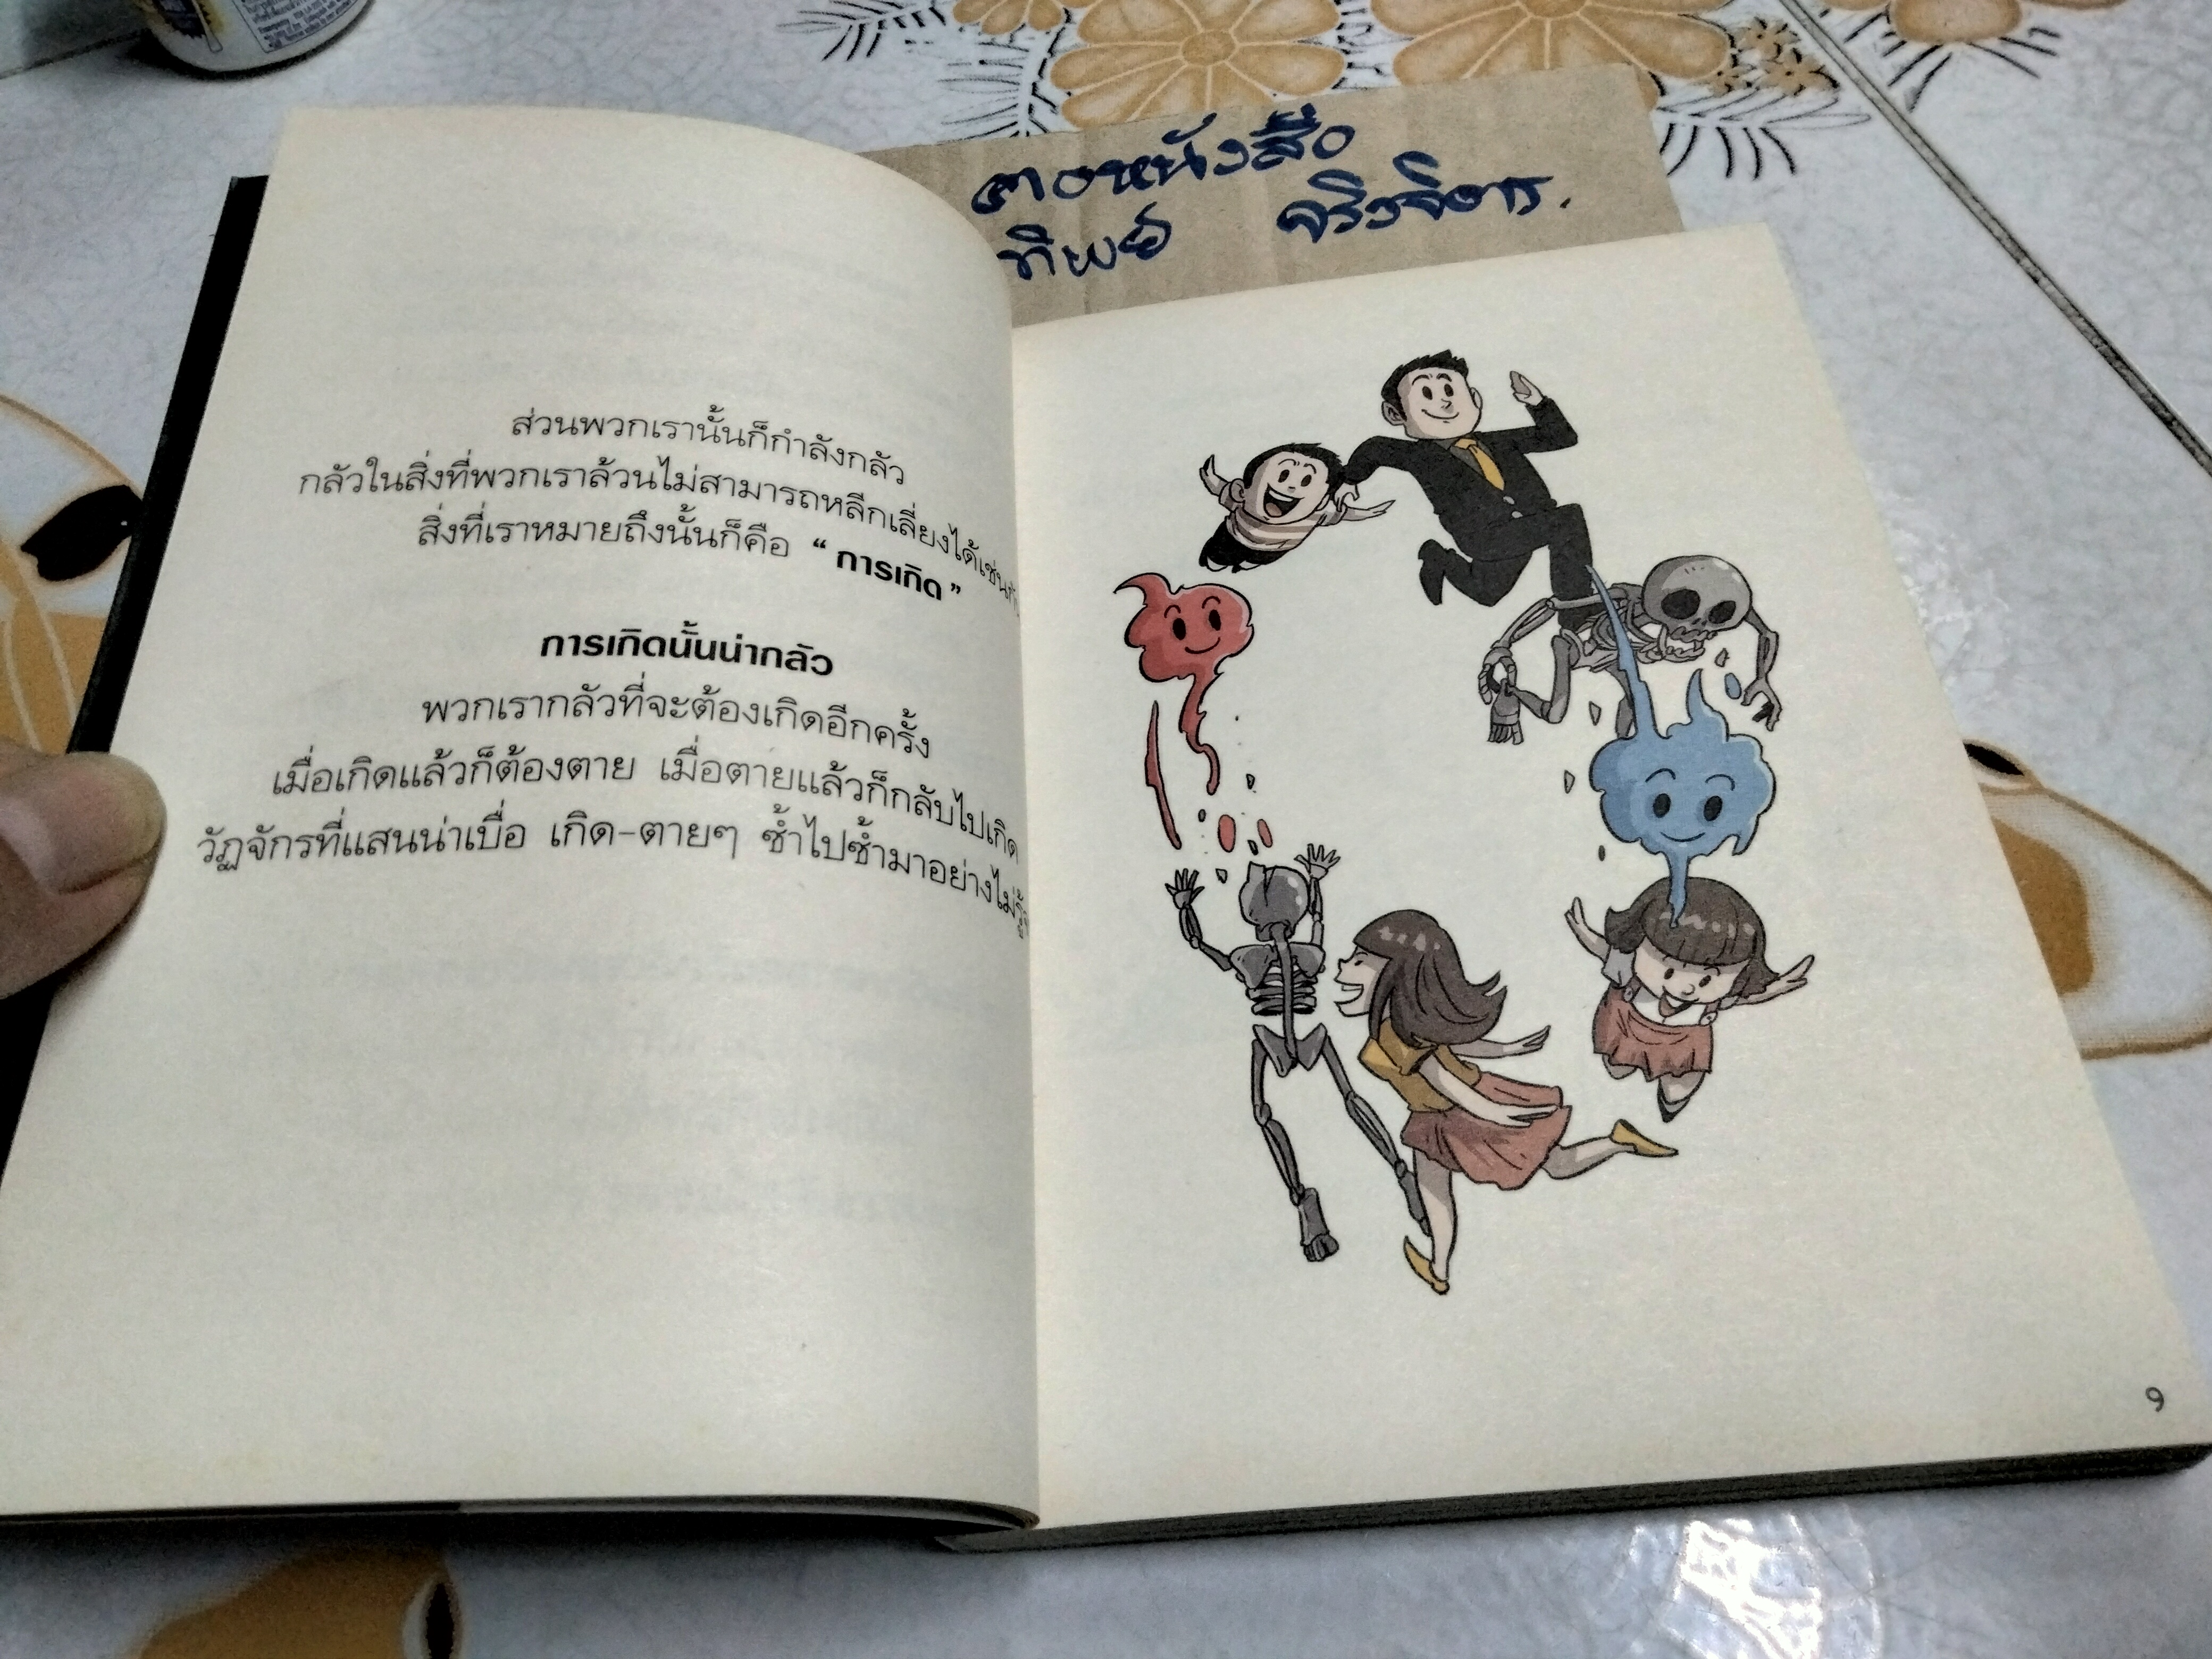 ส่วนพวกเรานั้นก็กำลังกลัว
กลัวในสิ่งที่พวกเราล้วนไม่สามารถหลีกเลี่ยงได้เช่นกัน
สิ่งที่เราหมายถึงนั้นก็คือ “ การเกิด ”
การเกิดนั้นน่ากลัว
พวกเรากลัวที่จะต้องเกิดอีกครั้ง
เมื่อเกิดแล้วก็ต้องตาย เมื่อตายแล้วก็กลับไปเกิด
วัฏจักรที่แสนน่าเบื่อ เกิด-ตายๆ ซ้ำไปซ้ำมาอย่างไม่รู้
ทิพย์
9